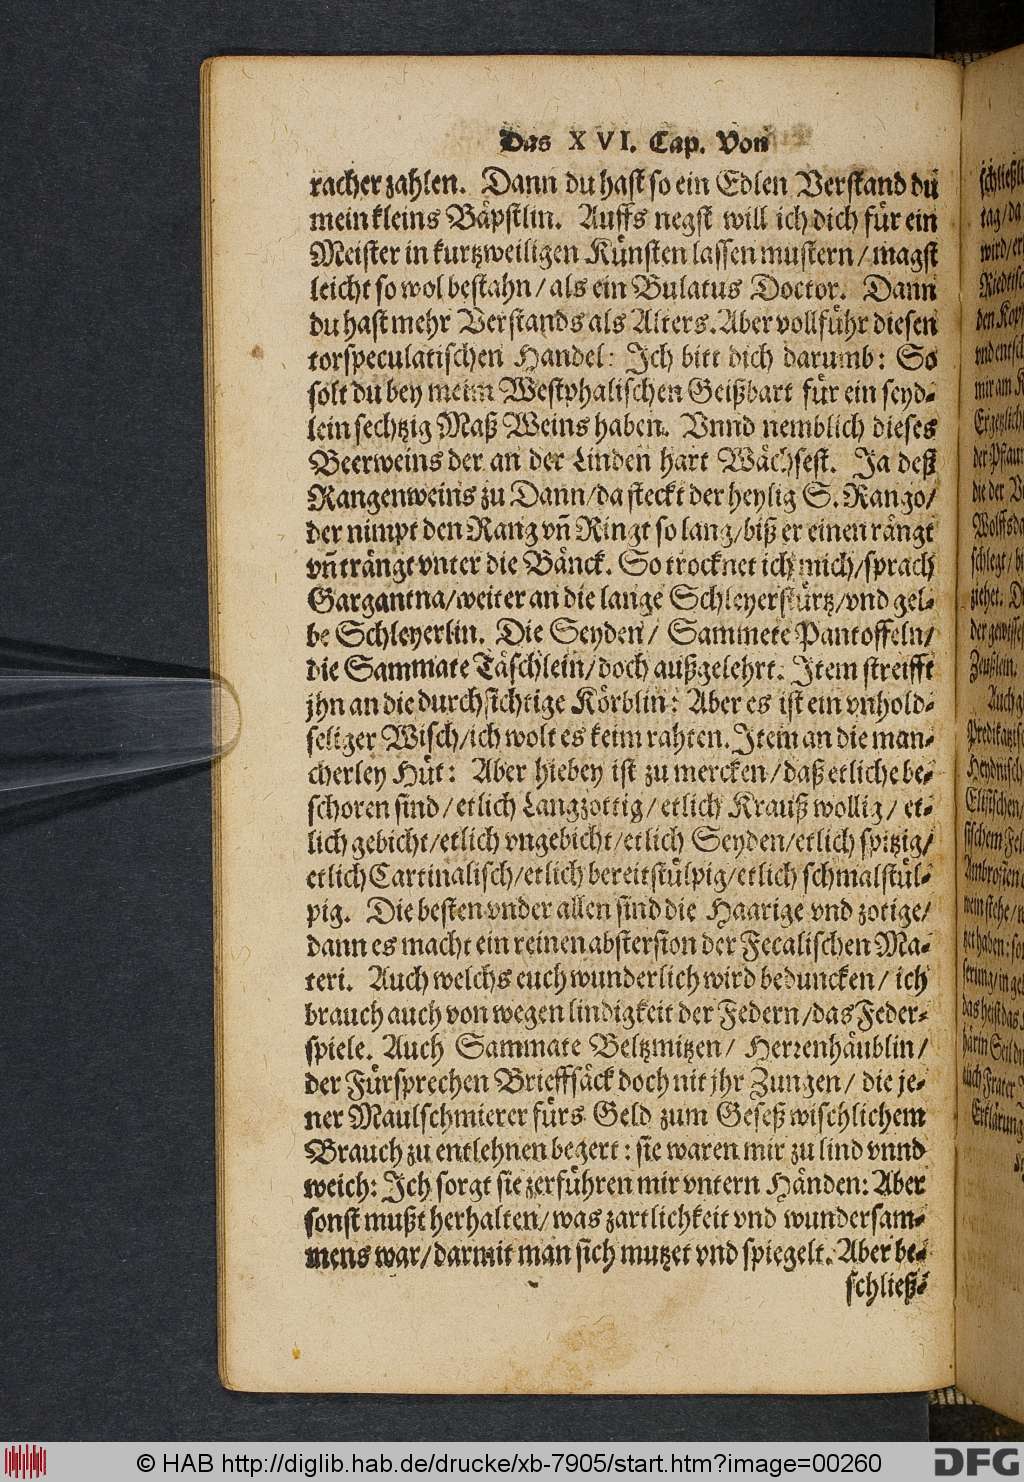 Das XVI. Cap. Von
racher zahlen. Dann du hast so ein Edlen Verstand du
mein kleins Bäpstlin. Auffs negst will ich dich für ein
Meister in kurtzweiligen Künsten lassen mustern / magst
leicht so wol bestahn / als ein Bulatus Doctor. Dann
du hast mehr Verstands als Alters. Aber vollführ diesen
torspeculatischen Handel: Ich bitt dich darumb: So
solt du bey meim Westphalischen Geißbart für ein seyd-
lein sechtzig Maß Weins haben. Vnnd nemblich dieses
Beerweins der an der Linden hart Wächsest. Ja deß
Rangenweins zu Dann / da steckt der heylig S. Rango /
der nimpt den Rang vñ Ringt so lang / biß er einen rängt
vñ trängt vnter die Bänck. So trocknet ich mich / sprach
Gargantna / weiter an die lange Schleyerstürtz / vnd gel-
be Schleyerlin. Die Seyden / Sammete Pantoffeln /
die Sammate Täschlein / doch außgelehrt. Item streifft
jhn an die durchsichtige Körblin: Aber es ist ein vnhold-
seliger Wisch / ich wolt es keim rahten. Item an die man-
cherley Hüt: Aber hiebey ist zu mercken / daß etliche be-
schoren sind / etlich Langzottig / etlich Krauß wollig / et-
lich gebicht / etlich vngebicht / etlich Seyden / etlich spitzig /
etlich Cartinalisch / etlich bereitstülpig / etlich schmalstül-
pig. Die besten vnder allen sind die Haarige vnd zotige /
dann es macht ein reinen abstersion der Fecalischen Ma-
teri. Auch welchs euch wunderlich wird beduncken / ich
brauch auch von wegen lindigkeit der Federn / das Feder-
spiele. Auch Sammate Beltzmitzen / Herrenhäublin /
der Fürsprechen Brieffsäck doch nit jhr Zungen / die je-
ner Maulschmierer fürs Geld zum Geseß wischlichem
Brauch zu entlehnen begert: sie waren mir zu lind vnnd
weich: Ich sorgt sie zerführen mir vntern Händen: Aber
sonst mußt herhalten / was zartlichkeit vnd wundersam-
mens war / darmit man sich mutzet vnd spiegelt. Aber be-
schließ-
© HAB http://diglib.hab.de/drucke/xb-7905/start.htm?image=00260
DFG